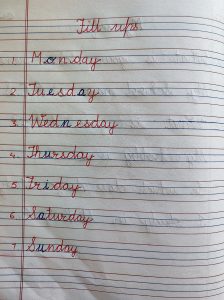 Fill ups
1. Monday
2. Tuesday
3. Wednesday
4. Thursday
5. Friday
6. Saturday
7. Sunday